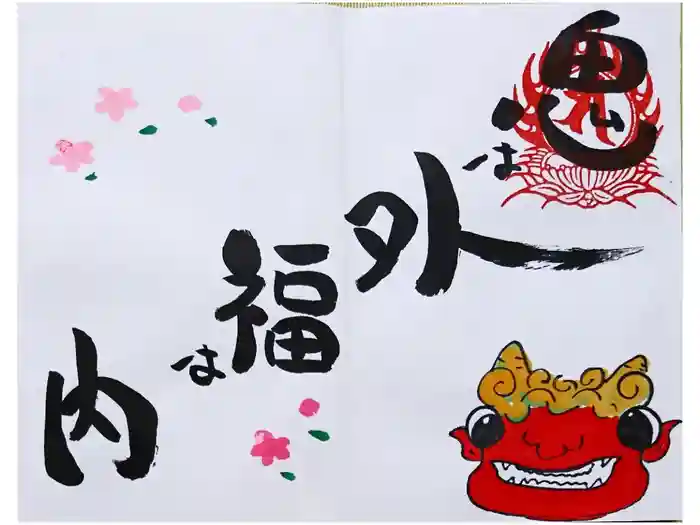 鬼は
外
福
は
内